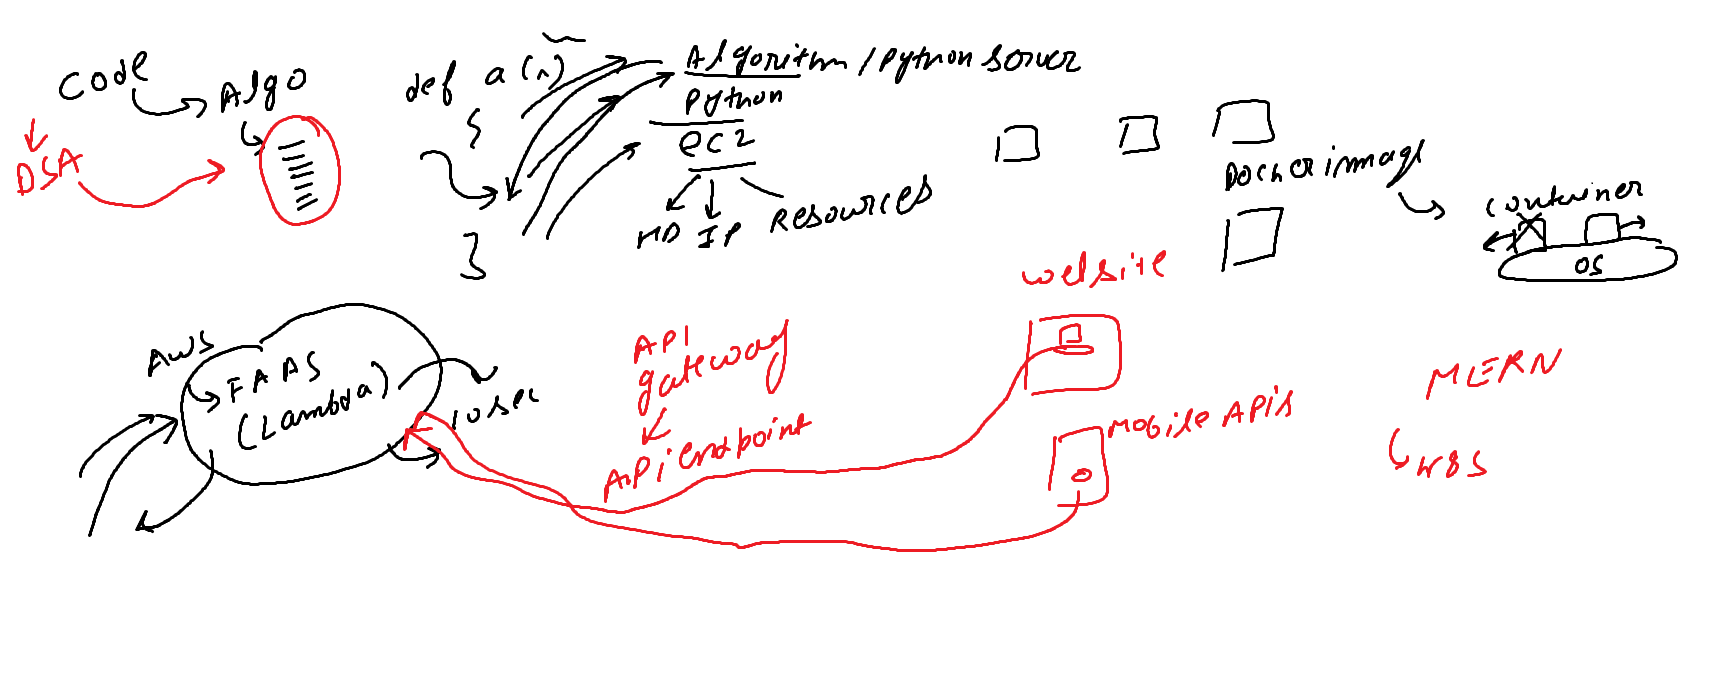 Code
Algo
DSA
def a(n)
{
}
Algorithm / Python server
Python
EC2
HD IP Resources
Docker image
Container
OS
AWS
FAAS
(Lambda)
10 sec
API
gateway
API Endpoint
website
Mobile APIs
MERN